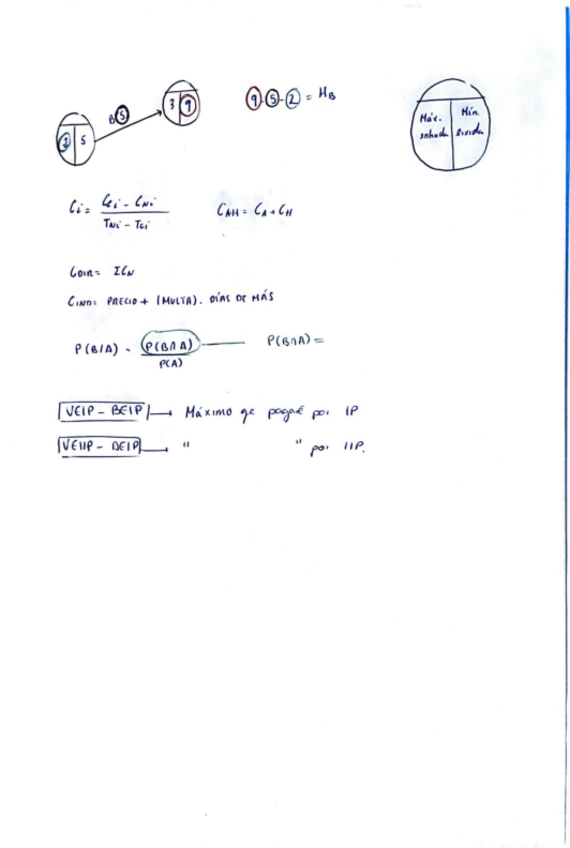 2 5
B 5
3 9
9 - 5 - 2 = HB
Máx. Mín.
Ci = Cci - CNi / TNi - Tci
CAH = CA + CH
CDIR = ΣCN
CIND = PRECIO + (MULTA). DÍAS DE MÁS
P(B/A) = P(B∩A) / P(A)
P(B∩A) =
VEIP - BEIP → Máximo qe pagaré por IP
VEIIP - BEIP → " " por IIP.